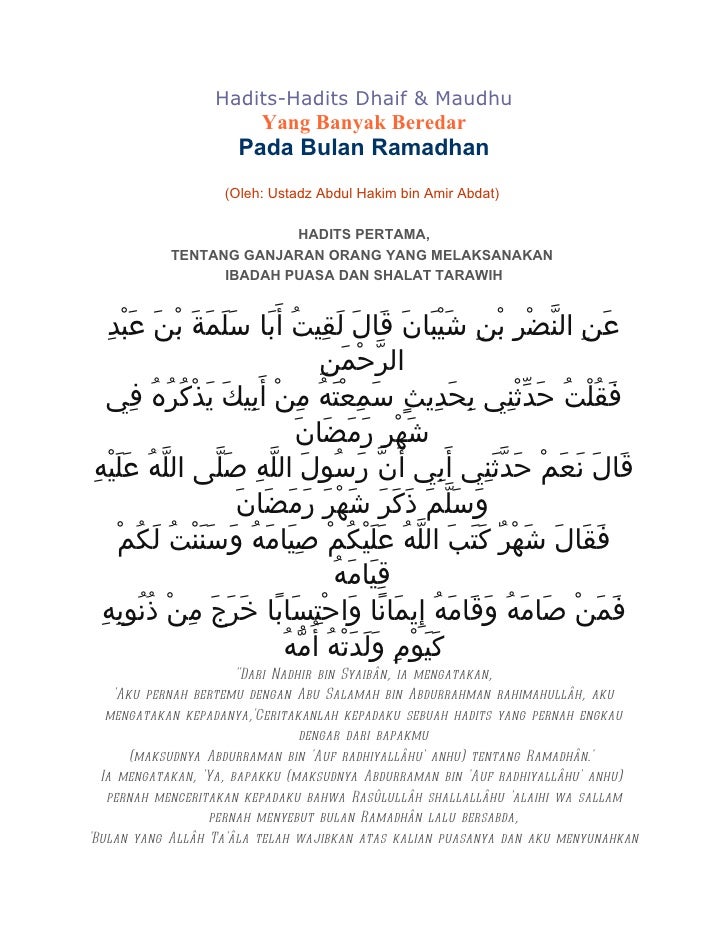 Hadits-Hadits Dhaif & Maudhu
Yang Banyak Beredar
Pada Bulan Ramadhan
(Oleh: Ustadz Abdul Hakim bin Amir Abdat)
HADITS PERTAMA,
TENTANG GANJARAN ORANG YANG MELAKSANAKAN
IBADAH PUASA DAN SHALAT TARAWIH
عَنِ النَّضْرِ بْنِ شَيْبَانَ قَالَ لَقِيتُ أَبَا سَلَمَةَ بْنَ عَبْدِ
الرَّحْمَنِ
فَقُلْتُ حَدِّثْنِي بِحَدِيثٍ سَمِعْتَهُ مِنْ أَبِيكَ يَذْكُرُهُ فِي
شَهْرِ رَمَضَانَ
قَالَ نَعَمْ حَدَّثَنِي أَبِي أَنَّ رَسُولَ اللَّهِ صَلَّى اللَّهُ عَلَيْهِ
وَسَلَّمَ ذَكَرَ شَهْرَ رَمَضَانَ
فَقَالَ شَهْرٌ كَتَبَ اللَّهُ عَلَيْكُمْ صِيَامَهُ وَسَنَنْتُ لَكُمْ
قِيَامَهُ
فَمَنْ صَامَهُ وَقَامَهُ إِيمَانًا وَاحْتِسَابًا خَرَجَ مِنْ ذُنُوبِهِ
كَيَوْمِ وَلَدَتْهُ أُمُّهُ
"Dari Nadhir bin Syaibân, ia mengatakan,
'Aku pernah bertemu dengan Abu Salamah bin Abdurrahman rahimahullâh, aku
mengatakan kepadanya,'Ceritakanlah kepadaku sebuah hadits yang pernah engkau
dengar dari bapakmu
(maksudnya Abdurraman bin 'Auf radhiyallâhu' anhu) tentang Ramadhân.'
Ia mengatakan, 'Ya, bapakku (maksudnya Abdurraman bin 'Auf radhiyallâhu' anhu)
pernah menceritakan kepadaku bahwa Rasûlullâh shallallâhu 'alaihi wa sallam
pernah menyebut bulan Ramadhân lalu bersabda,
'Bulan yang Allâh Ta'âla telah wajibkan atas kalian puasanya dan aku menyunahkan